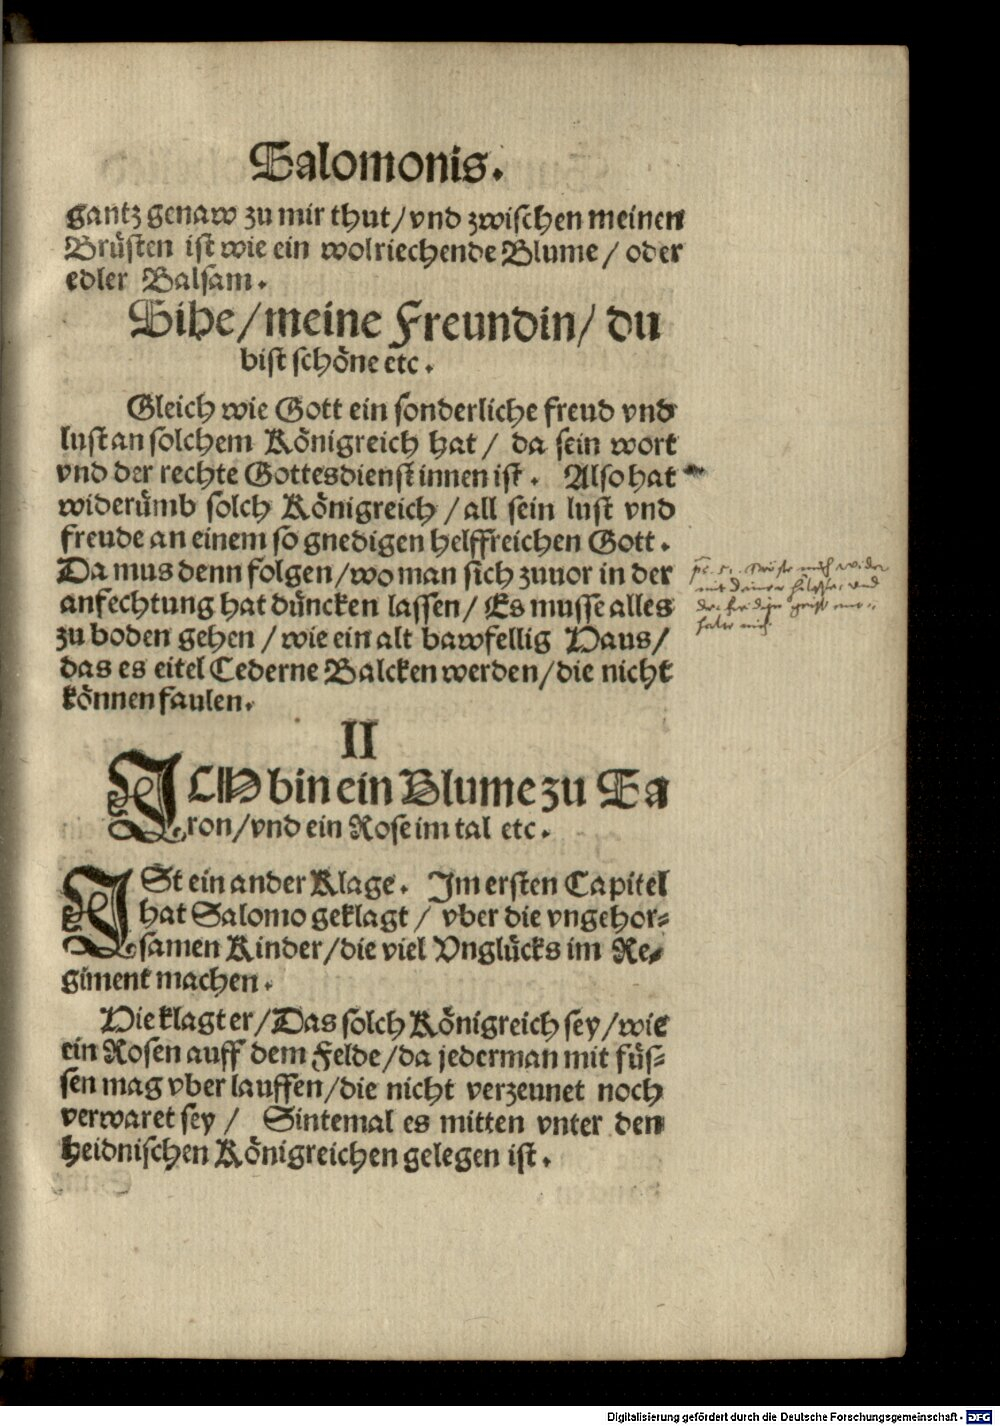 Salomonis.
gantz genaw zu mir thut/vnd zwischen meinen
Brüsten ist wie ein wolriechende Blume/ oder
edler Balsam.
Sihe/meine Freundin/ du
bist schöne etc.
Gleich wie Gott ein sonderliche freud vnd
lust an solchem Königreich hat/ da sein wort
vnd der rechte Gottesdienst innen ist. Also hat
widerümb solch Königreich/all sein lust vnd
freude an einem so gnedigen helffreichen Gott.
Da mus denn folgen/wo man sich zuuor in der
anfechtung hat düncken lassen/ Es musse alles
zu boden gehen/wie ein alt bawfellig Haus/
das es eitel Cederne Balcken werden/die nicht
können faulen.
II
ICH bin ein Blume zu Sa
ron/vnd ein Rose im tal etc.
ISt ein ander Klage. Im ersten Capitel
hat Salomo geklagt/ vber die vngehor-
samen Kinder/die viel Vnglücks im Re-
giment machen.
Hie klagt er/Das solch Königreich sey/wie
ein Rosen auff dem Felde/da jederman mit füs-
sen mag vber lauffen/die nicht verzeunet noch
verwaret sey/ Sintemal es mitten vnter den
heidnischen Königreichen gelegen ist.
mich
mit deiner
mich
Digitalisierung gefördert durch die Deutsche Forschungsgemeinschaft - DFG